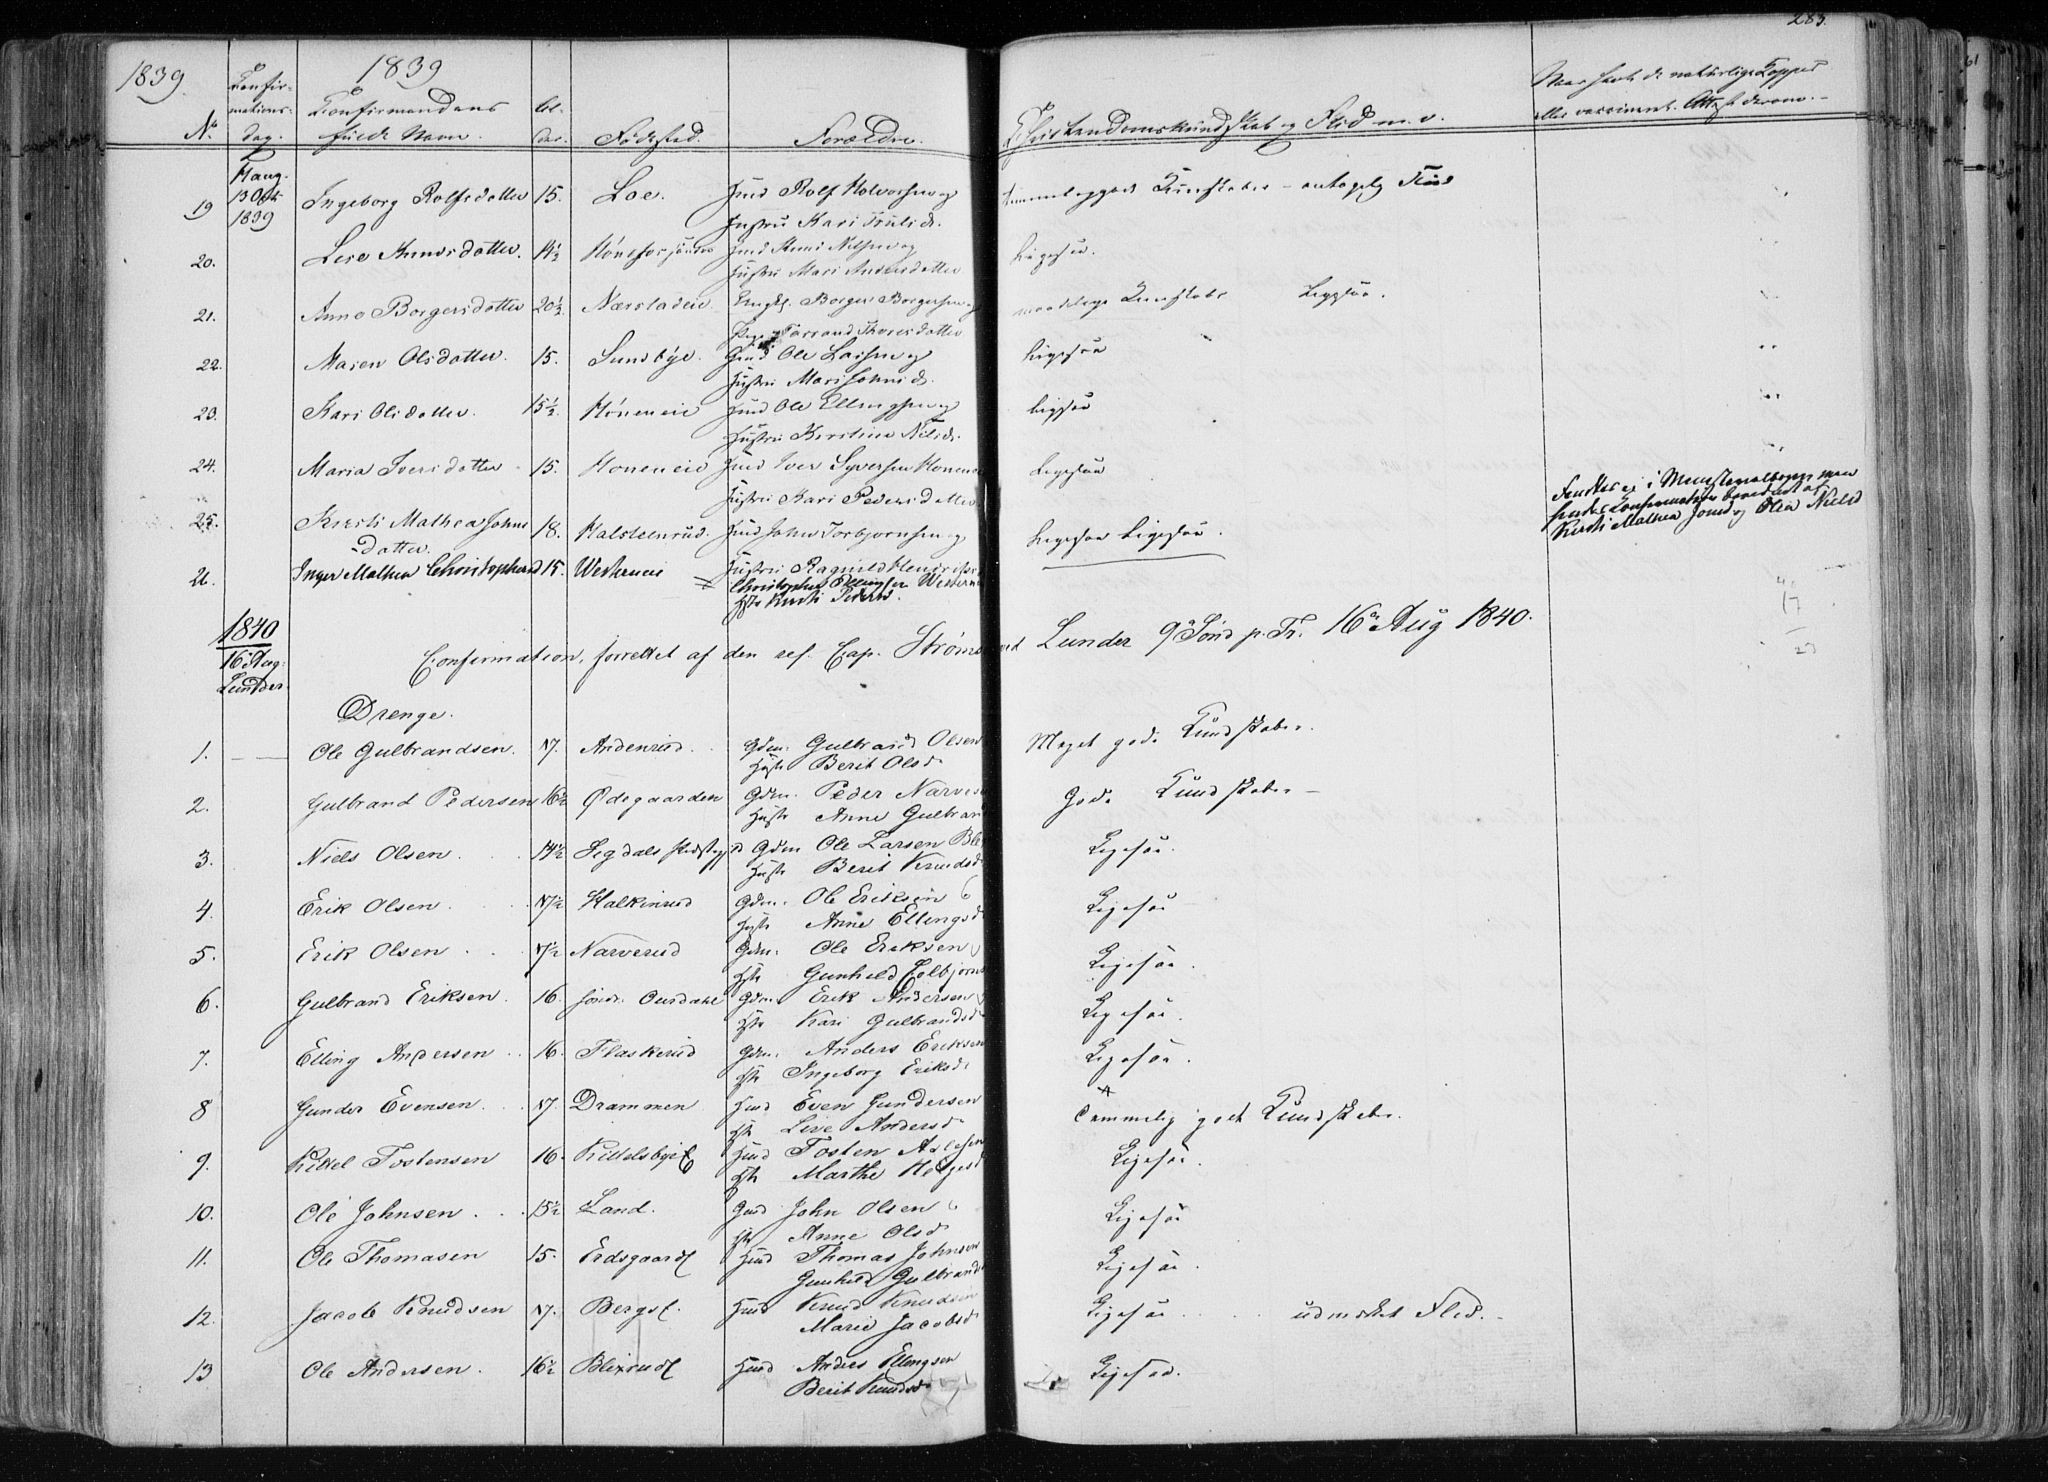 283.
1839.
1839
Confir-
mations-
dag.
No
Confirmandens
fulde Navn.
Al-
der.
Fødested.
Forældre.
Christendomskundskab og Flid m. v.
Naar havt de naturlige Kopper
eller vaccineret. Attest derom.
Haug.
13 Octb
1839
19 Ingeborg Rolfsdatter 15. Loe. Huusd Rolf Halvorsen og
Hustru Kari Truls d.
temmeliggode Kundskaber - antagelig Flid
20. Lise Knudsdatter. 14½ Hønefos Huusd Knud Nilsen og
Hustru Mari Andersdatter
Ligesaa.
21. Anne Borgersdatter 20½ Nærstadeie Borger Borgersen og
Thoresdatter
maadelige Kundskaber Ligesaa.
22. Maren Olsdatter. 15. Sundbye. Gmd Ole Larsen og
Hustru Mari Johns d.
Ligesaa
23. Kari Olsdatter. 15½. Høneneie Huusd Ole Ellingsen og
Hustru Kirstine Nils d.
Ligesaa
24. Maria Iversdatter 15. Høneneie Huusd Iver Syversen Hønen
Hustru Kari Pedersdatter
Ligesaa
25. Kirsti Mathea Johns
-datter. 18. Kalsteenrud. Huusd John Torbjørnsen og
Hustru Ragnild Hendriksd
Ligesaa Ligesaa.
Findes ei i Ministerialbogen men
Kirsti Mathea Jonsd og Olea Nielsd
26. Inger Mathea Christophersd 15. Westerneie Christopher Ellingsen Western
Hst Kirsti Pedersd.
1840
16 Aug:
Lunder.
Confirmation, forrettet af den res. Cap. Strøms Lunder 9de Sønd p. Tr. 16de Aug 1840.
Drenge.
1. Ole Gulbrandsen. 17. Andenrud. Gdm. Gulbrand Olsen
Hust Berit Olsd
Meget gode Kundskaber.
2. Gulbrand Pedersen 16½ Ødegaarden Gdm. Peder Narves
Hustr Anne Gulbran
Gode Kundskaber -
3. Niels Olsen 14½ Segdals Gdm Ole Larsen
Hustr Berit Knudsd
Ligesaa.
4. Erik Olsen 17½ Halkinrud Gdm. Ole Eriksen
Hustr Anne Ellingsd
Ligesaa
5. Erik Olsen 17½ Narverud Gdm. Ole Eriksen
Hst Gunhild Colbjørns
Ligesaa.
6. Gulbrand Eriksen. 16. Søndr. Ourdahl Gdm Erik Andersen
Hst Kari Gulbrandsd
Ligesaa.
7. Elling Andersen 16. Flaskerud Gdm. Anders Eriksen
Hst Ingeborg Eriksd
Ligesaa.
8 Gunder Evensen. 17. Drammen Huusd Even Gundersen
Hst Live Andersd
Temmelig godt Kundskaber.
9. Kittel Tostensen 16. Kittelsbye Huusd Tosten Aslesen
Hst Marthe Helgesd
Ligesaa.
10. Ole Johnsen 15½ Land. Gmd John Olsen
Hst Anne Olsd
Ligesaa
11. Ole Thomasen 15. Huusd Thomas Johnsen
Gunhild Gulbrands
Ligesaa.
12. Jacob Knudsen 17. Huusd Knud Knudsen
Marie Jacobsd
Ligesaa udmerket Flid.
13 Ole Andersen. 16½ Huusd Anders Ellingsen
Berit Knudsd
Ligesaa.